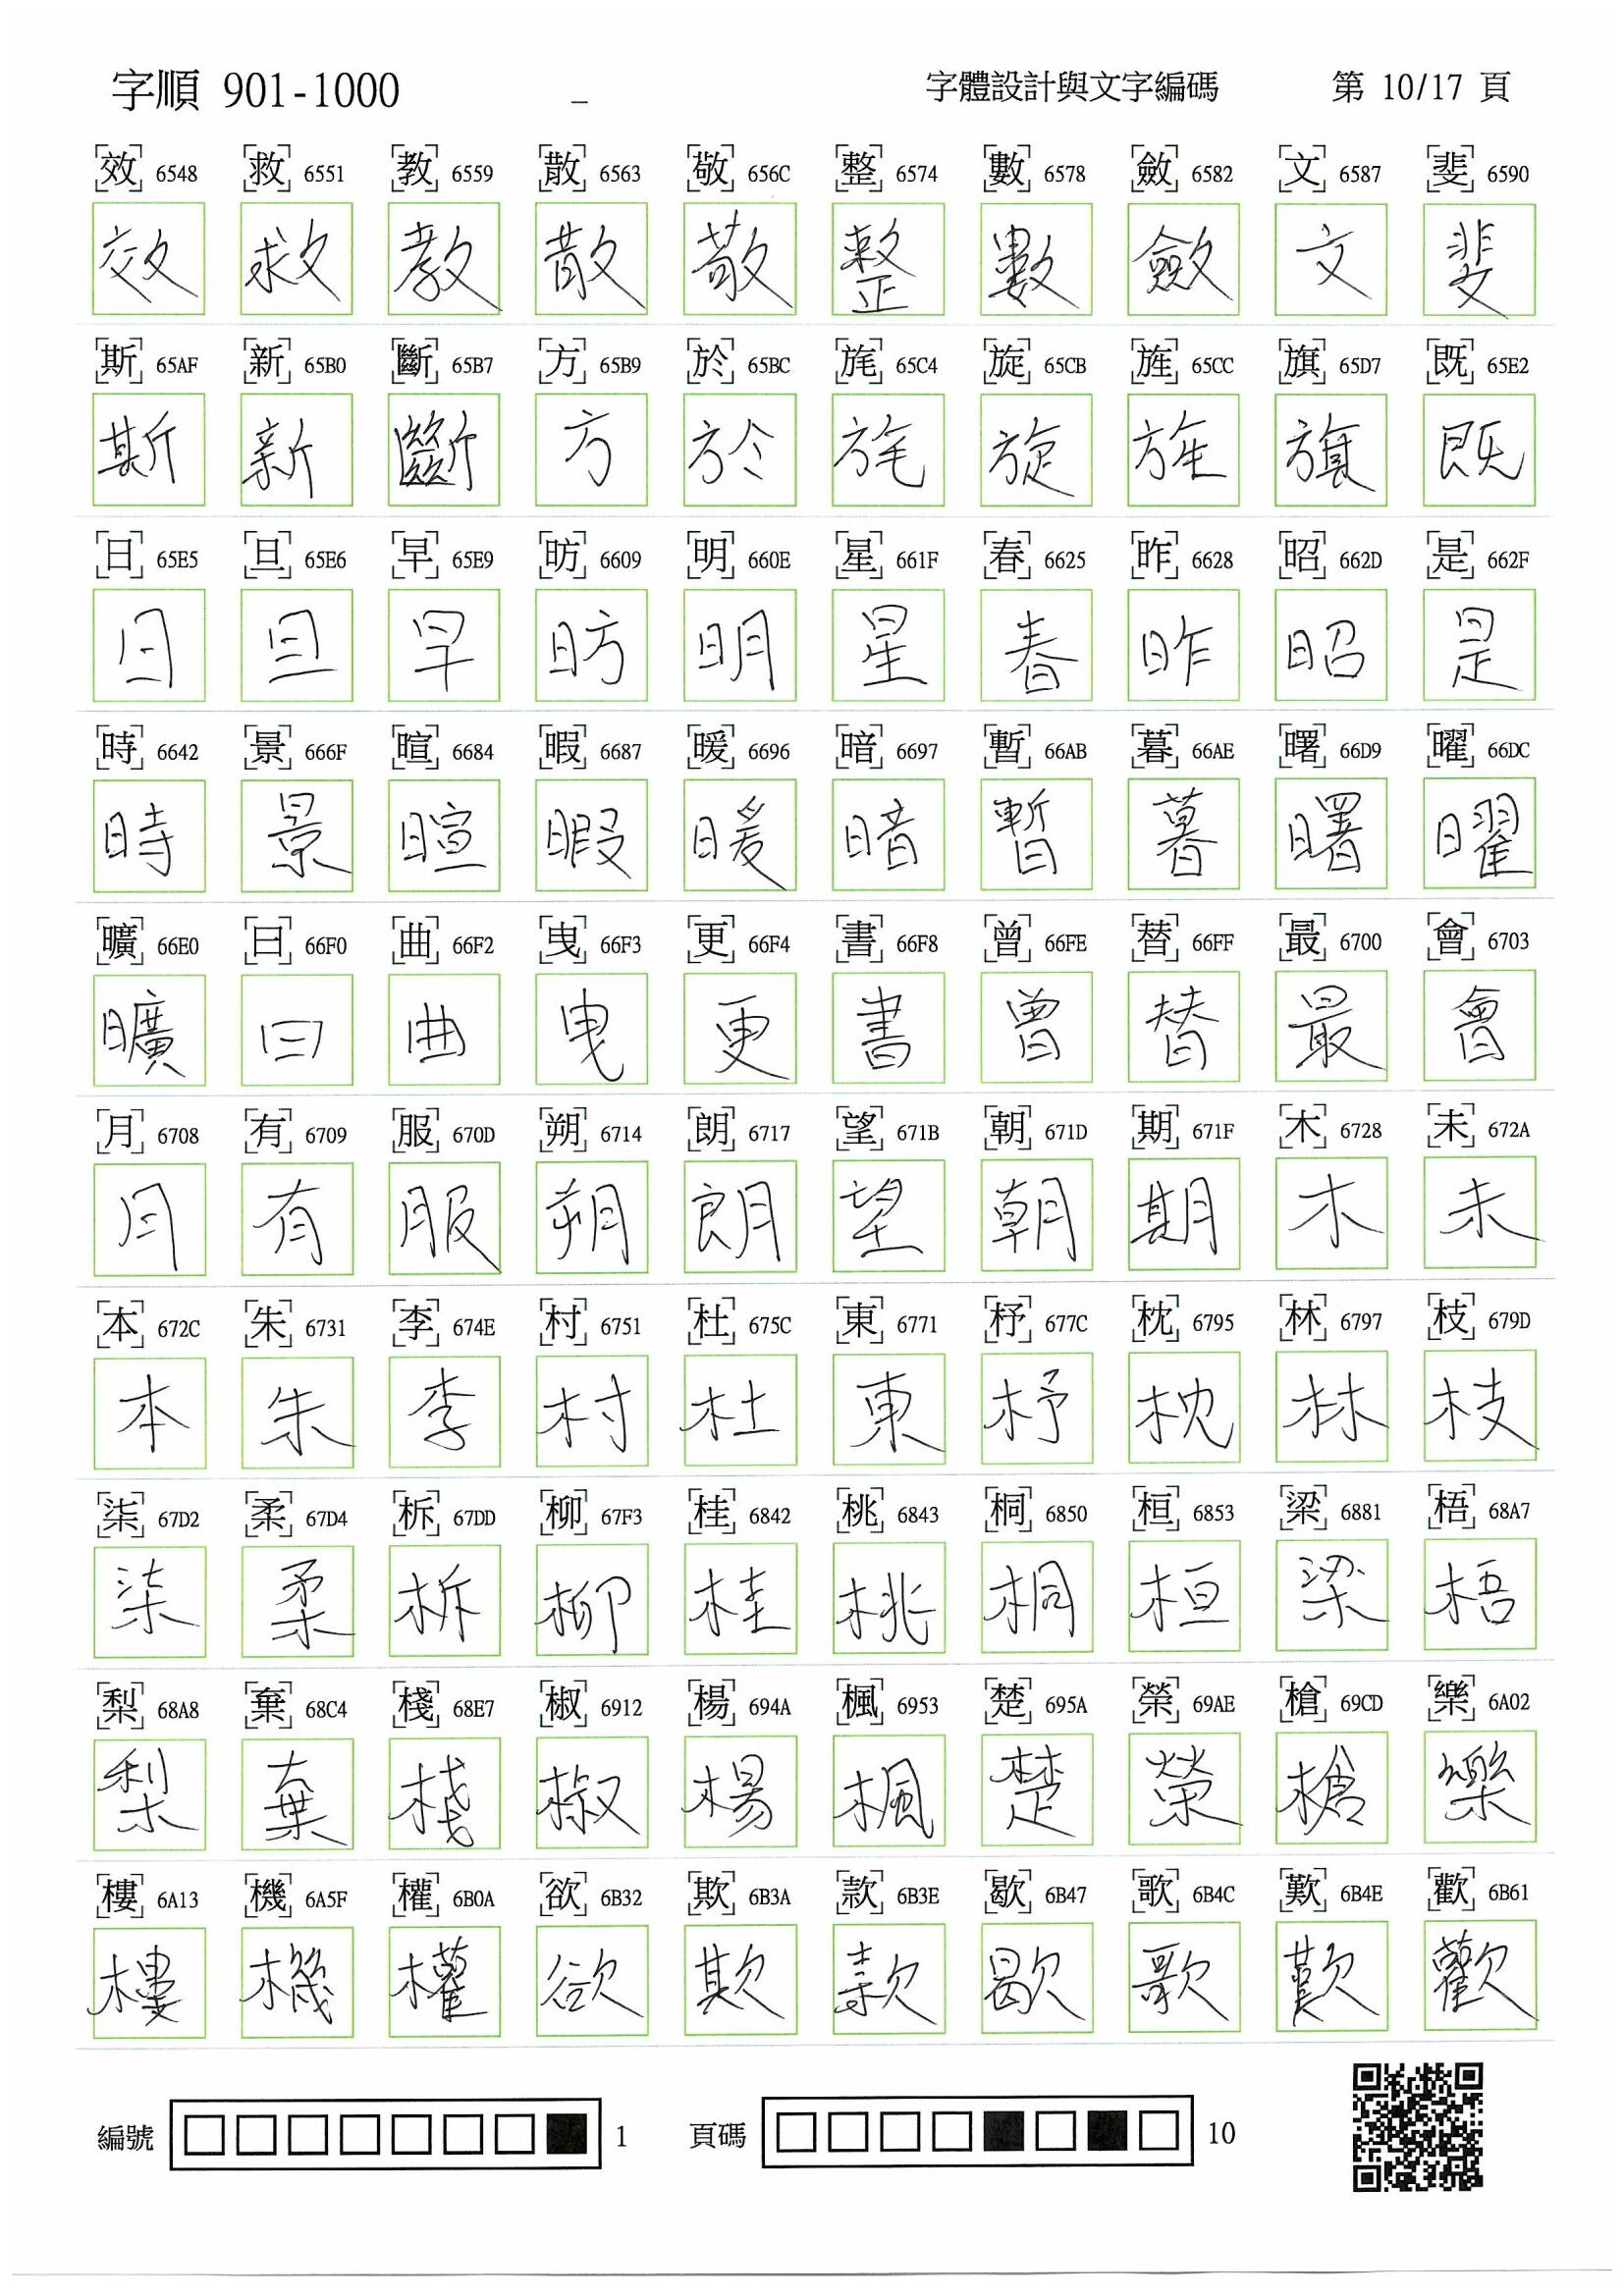 字順 901-1000 – 字體設計與文字編碼 第 10/17 頁
效 6548 救 6551 教 6559 散 6563 敬 656C 整 6574 數 6578 斂 6582 文 6587 斐 6590
效 救 教 散 敬 整 數 斂 文 斐
斯 65AF 新 65B0 斷 65B7 方 65B9 於 65BC 旄 65C4 旋 65CB 旌 65CC 旗 65D7 既 65E2
斯 新 斷 方 於 旄 旋 旌 旗 既
日 65E5 旦 65E6 早 65E9 昉 6609 明 660E 星 661F 春 6625 昨 6628 昭 662D 是 662F
日 旦 早 昉 明 星 春 昨 昭 是
時 6642 景 666F 暄 6684 暇 6687 暖 6696 暗 6697 暫 66AB 暮 66AE 曙 66D9 曜 66DC
時 景 暄 暇 暖 暗 暫 暮 曙 曜
曠 66E0 曰 66F0 曲 66F2 曳 66F3 更 66F4 書 66F8 曾 66FE 替 66FF 最 6700 會 6703
曠 曰 曲 曳 更 書 曾 替 最 會
月 6708 有 6709 服 670D 朔 6714 朗 6717 望 671B 朝 671D 期 671F 木 6728 未 672A
月 有 服 朔 朗 望 朝 期 木 未
本 672C 朱 6731 李 674E 村 6751 杜 675C 東 6771 杼 677C 枕 6795 林 6797 枝 679D
本 朱 李 村 杜 東 杼 枕 林 枝
柒 67D2 柔 67D4 柝 67DD 柳 67F3 桂 6842 桃 6843 桐 6850 桓 6853 梁 6881 梧 68A7
柒 柔 柝 柳 桂 桃 桐 桓 梁 梧
梨 68A8 棄 68C4 棧 68E7 椒 6912 楊 694A 楓 6953 楚 695A 榮 69AE 槍 69CD 樂 6A02
梨 棄 棧 椒 楊 楓 楚 榮 槍 樂
樓 6A13 機 6A5F 權 6B0A 欲 6B32 欺 6B3A 款 6B3E 歇 6B47 歌 6B4C 歎 6B4E 歡 6B61
樓 機 權 欲 欺 款 歇 歌 歎 歡
編號 1 頁碼 10